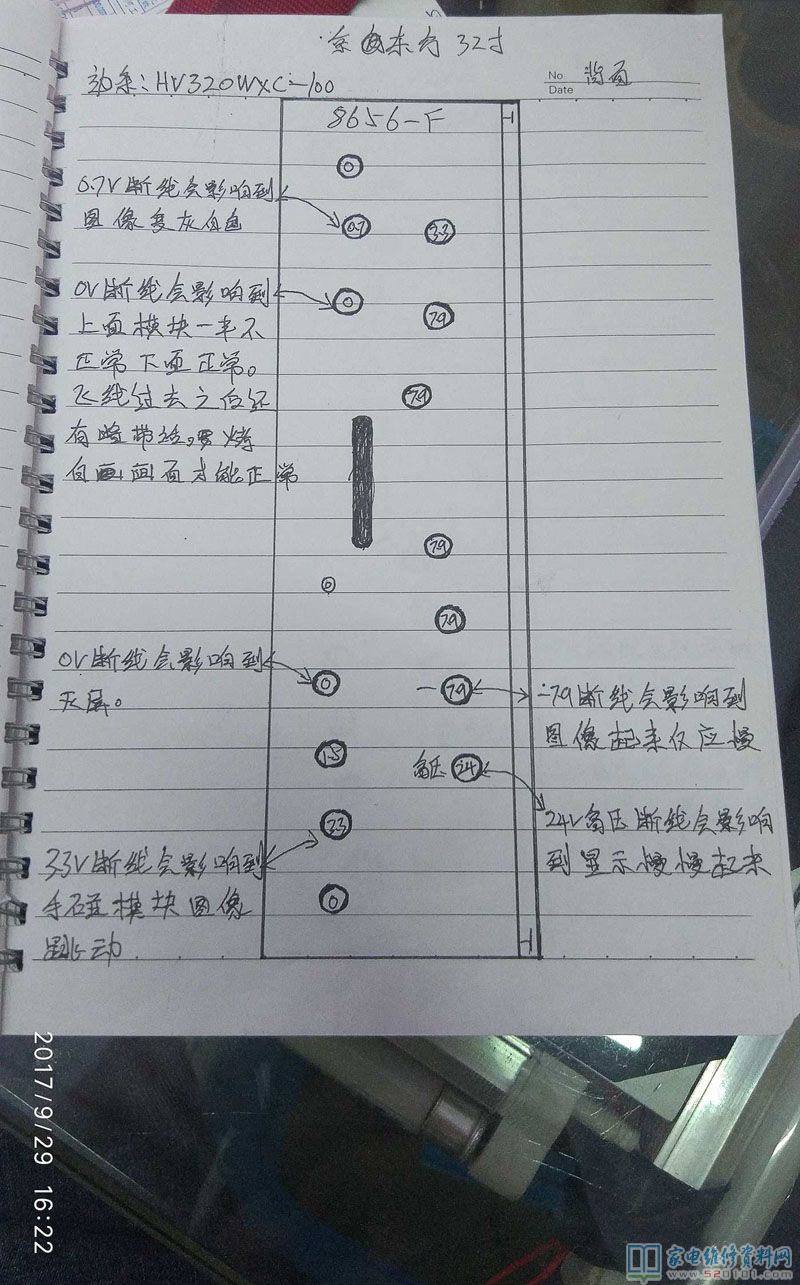 京东方 32寸
No 背面
Date
型系: HV320WXC-100
8656-F
0
0.7V断线会影响到
图像变灰白色
0.7
3.3
0V断线会影响到
上面模块一半不
正常下面正常。
飞线过去之后还
有暗带
白画面才能正常
0
7.9
7.9
7.9
0
7.9
0V断线会影响到
灰屏。
0
-7.9
-7.9断线会影响到
图像起来反应慢
1.5
高压 24
24V高压断线会影响
到显示慢慢起来
3.3
3.3V断线会影响到
手碰模块图像
跳动
0
2017/9/29 16:22
家电维修资料网
www.520101.com